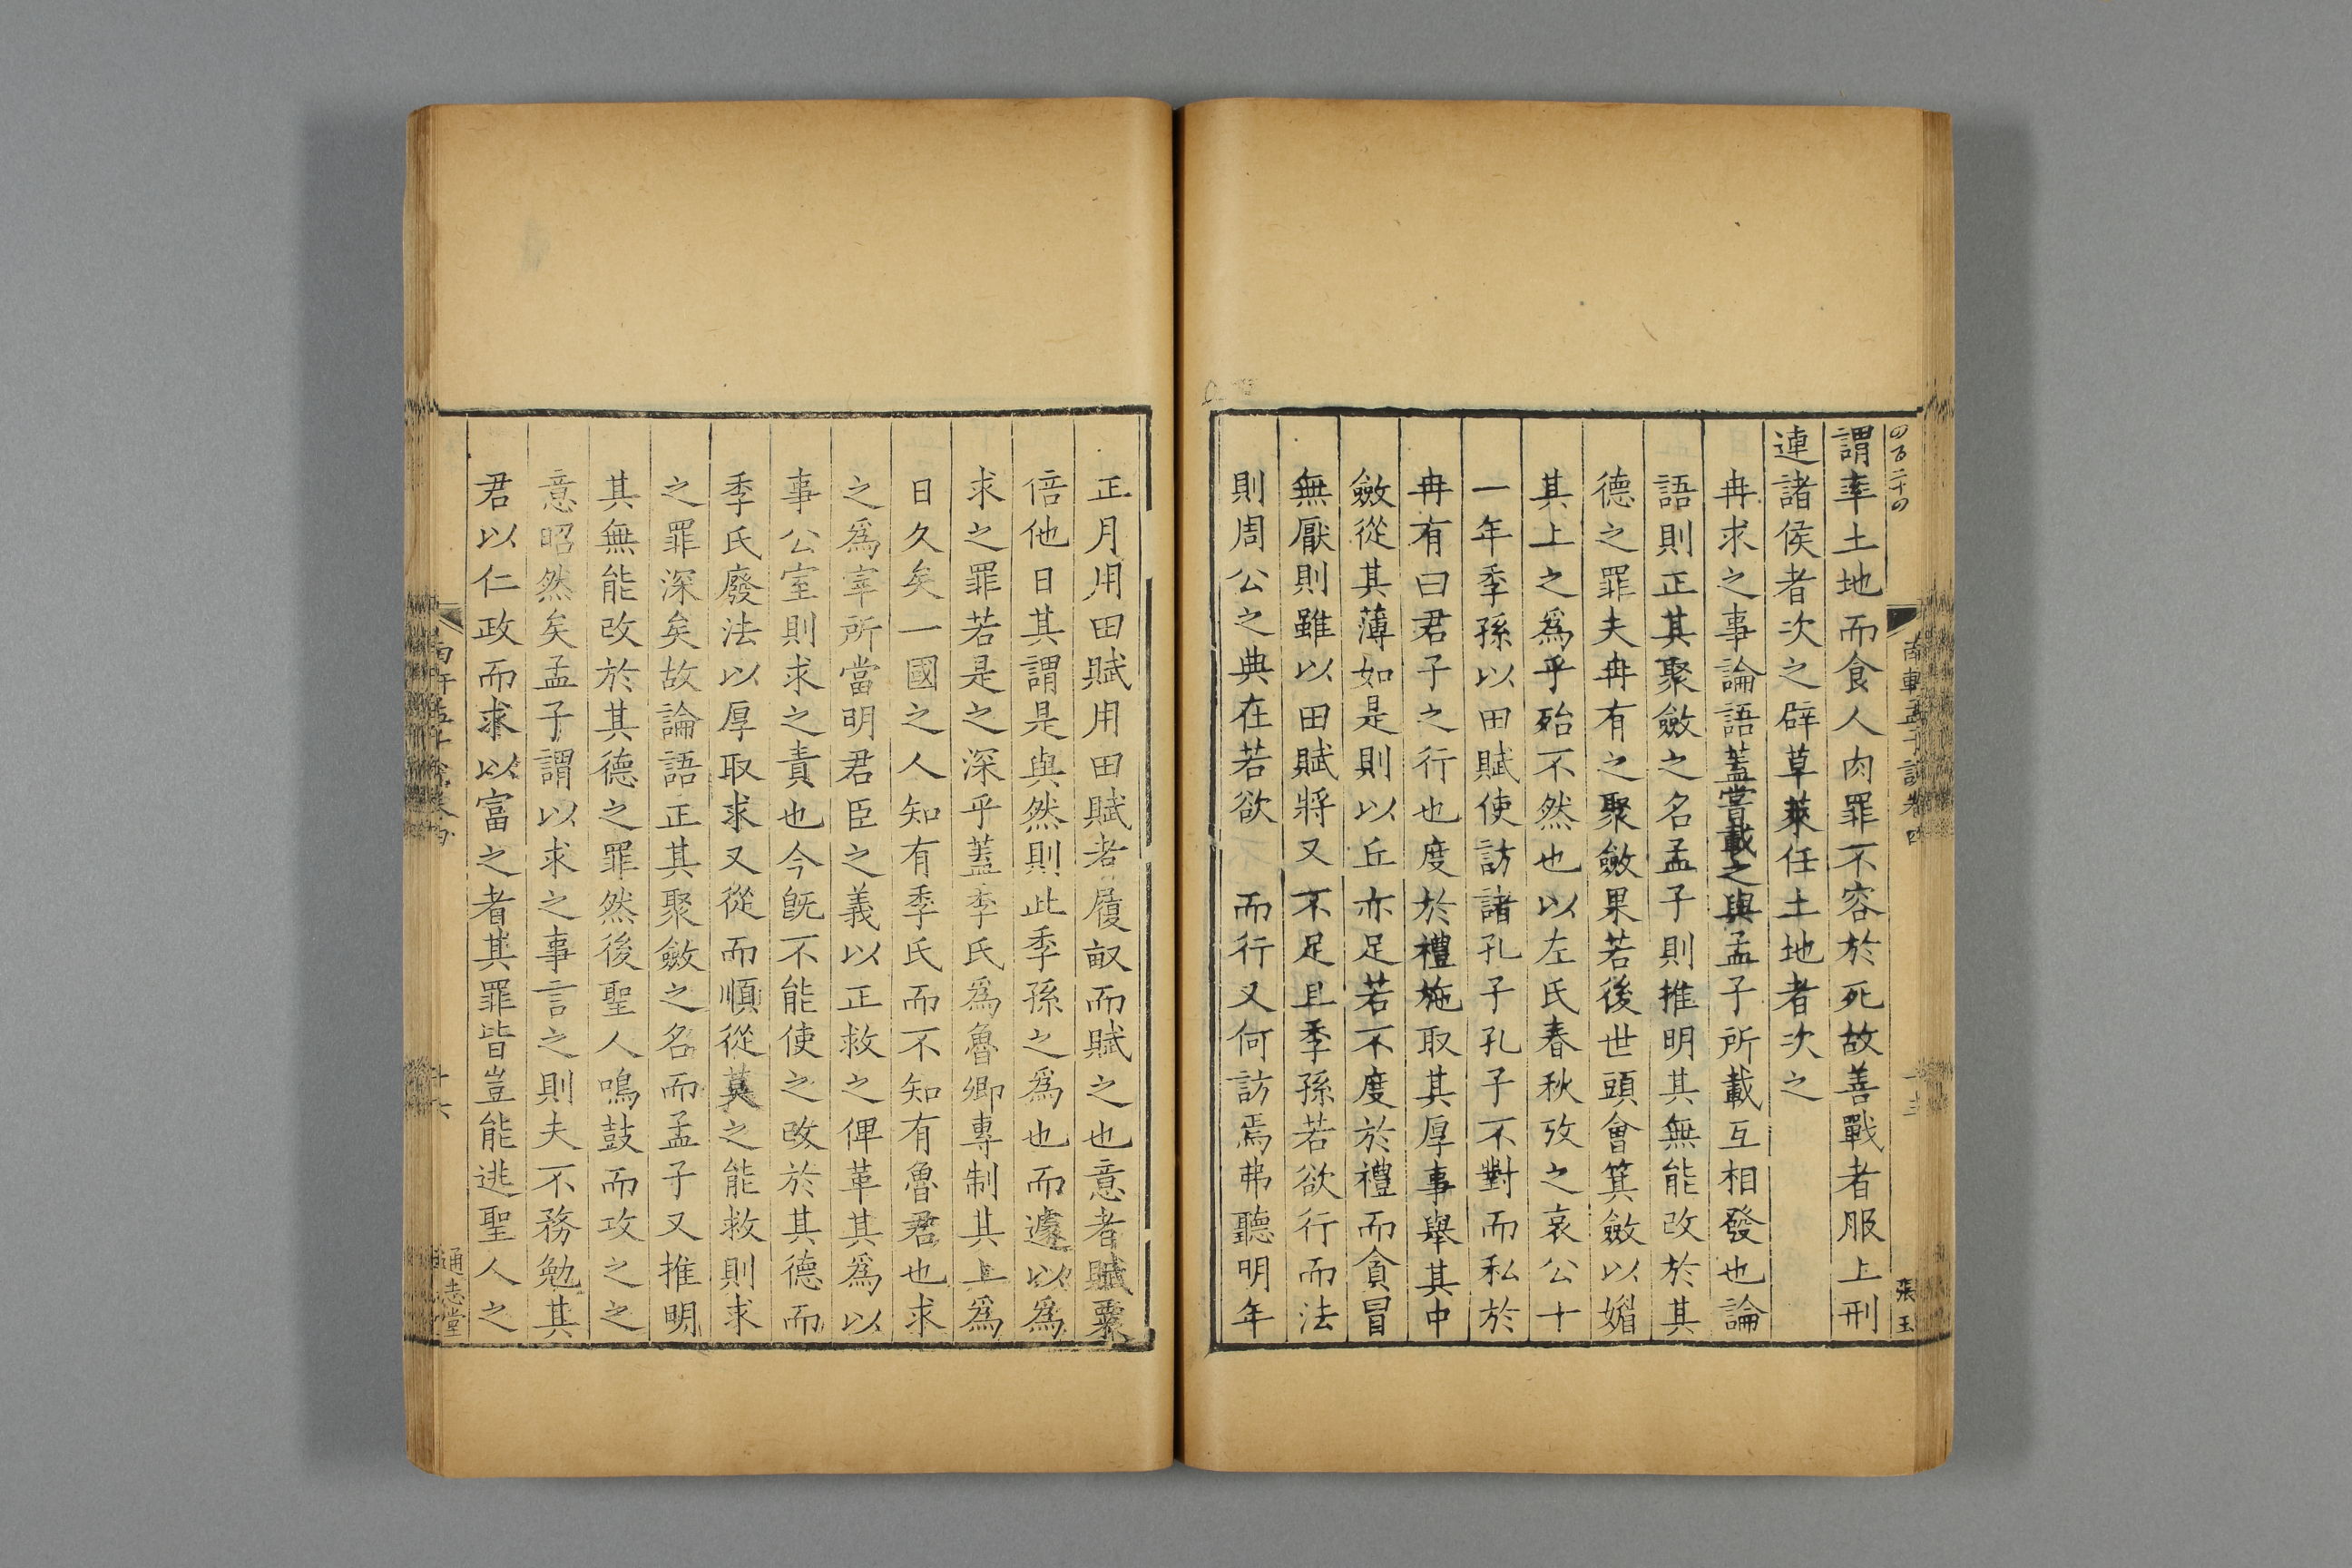 四百二十四
南軒孟子說卷四
張玉
謂率土地而食人肉罪不容於死故善戰者服上刑
連諸侯者次之辟草萊任土地者次之
冉求之事論語蓋嘗載之與孟子所載互相發也論
語則正其聚斂之名孟子則推明其無能改於其
德之罪夫冉有之聚斂果若後世頭會箕斂以媚
其上之爲乎殆不然也以左氏春秋攷之哀公十
一年季孫以田賦使訪諸孔子孔子不對而私於
冉有曰君子之行也度於禮施取其厚事舉其中
斂從其薄如是則以丘亦足若不度於禮而貪冒
無厭則雖以田賦將又不足且季孫若欲行而法
則周公之典在若欲 而行又何訪焉弗聽明年
正月用田賦用田賦者履畝而賦之也意者賦粟
倍他日其謂是與然則此季孫之爲也而遽以爲
求之罪若是之深乎蓋季氏爲魯卿專制其上爲
日久矣一國之人知有季氏而不知有魯君也求
之爲宰所當明君臣之義以正救之俾革其爲以
事公室則求之責也今旣不能使之改於其德而
季氏廢法以厚取求又從而順從莫之能救則求
之罪深矣故論語正其聚斂之名而孟子又推明
其無能改於其德之罪然後聖人鳴鼓而攻之之
意昭然矣孟子謂以求之事言之則夫不務勉其
君以仁政而求以富之者其罪皆豈能逃聖人之
通志堂